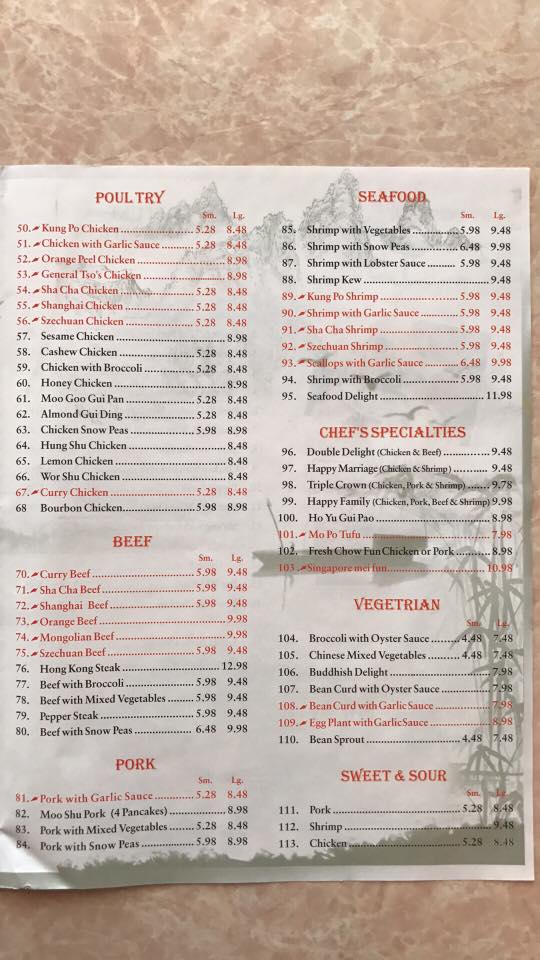 POULTRY
Sm. Lg.
50. Kung Po Chicken 5.28 8.48
51. Chicken with Garlic Sauce 5.28 8.48
52. Orange Peel Chicken 8.98
53. General Tso's Chicken 8.98
54. Sha Cha Chicken 5.28 8.48
55. Shanghai Chicken 5.28 8.48
56. Szechuan Chicken 5.28 8.48
57. Sesame Chicken 8.98
58. Cashew Chicken 5.28 8.48
59. Chicken with Broccoli 5.28 8.48
60. Honey Chicken 8.98
61. Moo Goo Gui Pan 5.28 8.48
62. Almond Gui Ding 5.28 8.48
63. Chicken Snow Peas 5.98 8.98
64. Hung Shu Chicken 8.48
65. Lemon Chicken 8.48
66. Wor Shu Chicken 8.48
67. Curry Chicken 5.28 8.48
68 Bourbon Chicken 5.98 8.98
BEEF
Sm. Lg.
70. Curry Beef 5.98 9.48
71. Sha Cha Beef 5.98 9.48
72. Shanghai Beef 5.98 9.48
73. Orange Beef 9.98
74. Mongolian Beef 9.98
75. Szechuan Beef 5.98 9.48
76. Hong Kong Steak 12.98
77. Beef with Broccoli 5.98 9.48
78. Beef with Mixed Vegetables 5.98 9.48
79. Pepper Steak 5.98 9.48
80. Beef with Snow Peas 6.48 9.98
PORK
Sm. Lg.
81. Pork with Garlic Sauce 5.28 8.48
82. Moo Shu Pork (4 Pancakes) 8.98
83. Pork with Mixed Vegetables 5.28 8.48
84. Pork with Snow Peas 5.98 8.98
SEAFOOD
Sm. Lg.
85. Shrimp with Vegetables 5.98 9.48
86. Shrimp with Snow Peas 6.48 9.98
87. Shrimp with Lobster Sauce 5.98 9.48
88. Shrimp Kew 9.48
89. Kung Po Shrimp 5.98 9.48
90. Shrimp with Garlic Sauce 5.98 9.48
91. Sha Cha Shrimp 5.98 9.48
92. Szechuan Shrimp 5.98 9.48
93. Scallops with Garlic Sauce 6.48 9.98
94. Shrimp with Broccoli 5.98 9.48
95. Seafood Delight 11.98
CHEF'S SPECIALTIES
96. Double Delight (Chicken & Beef) 9.48
97. Happy Marriage (Chicken & Shrimp) 9.48
98. Triple Crown (Chicken, Pork & Shrimp) 9.78
99. Happy Family (Chicken, Pork, Beef & Shrimp) 9.98
100. Ho Yu Gui Pao 8.98
101. Mo Po Tufu 7.98
102. Fresh Chow Fun Chicken or Pork 8.98
103. Singapore mei fun 10.98
VEGETRIAN
Sm. Lg.
104. Broccoli with Oyster Sauce 4.48 7.48
105. Chinese Mixed Vegetables 4.48 7.48
106. Buddhish Delight 7.98
107. Bean Curd with Oyster Sauce 7.98
108. Bean Curd with Garlic Sauce 7.98
109. Egg Plant with Garlic Sauce 8.98
110. Bean Sprout 4.48 7.48
SWEET & SOUR
Sm. Lg.
111. Pork 5.28 8.48
112. Shrimp 9.48
113. Chicken 5.28 8.48